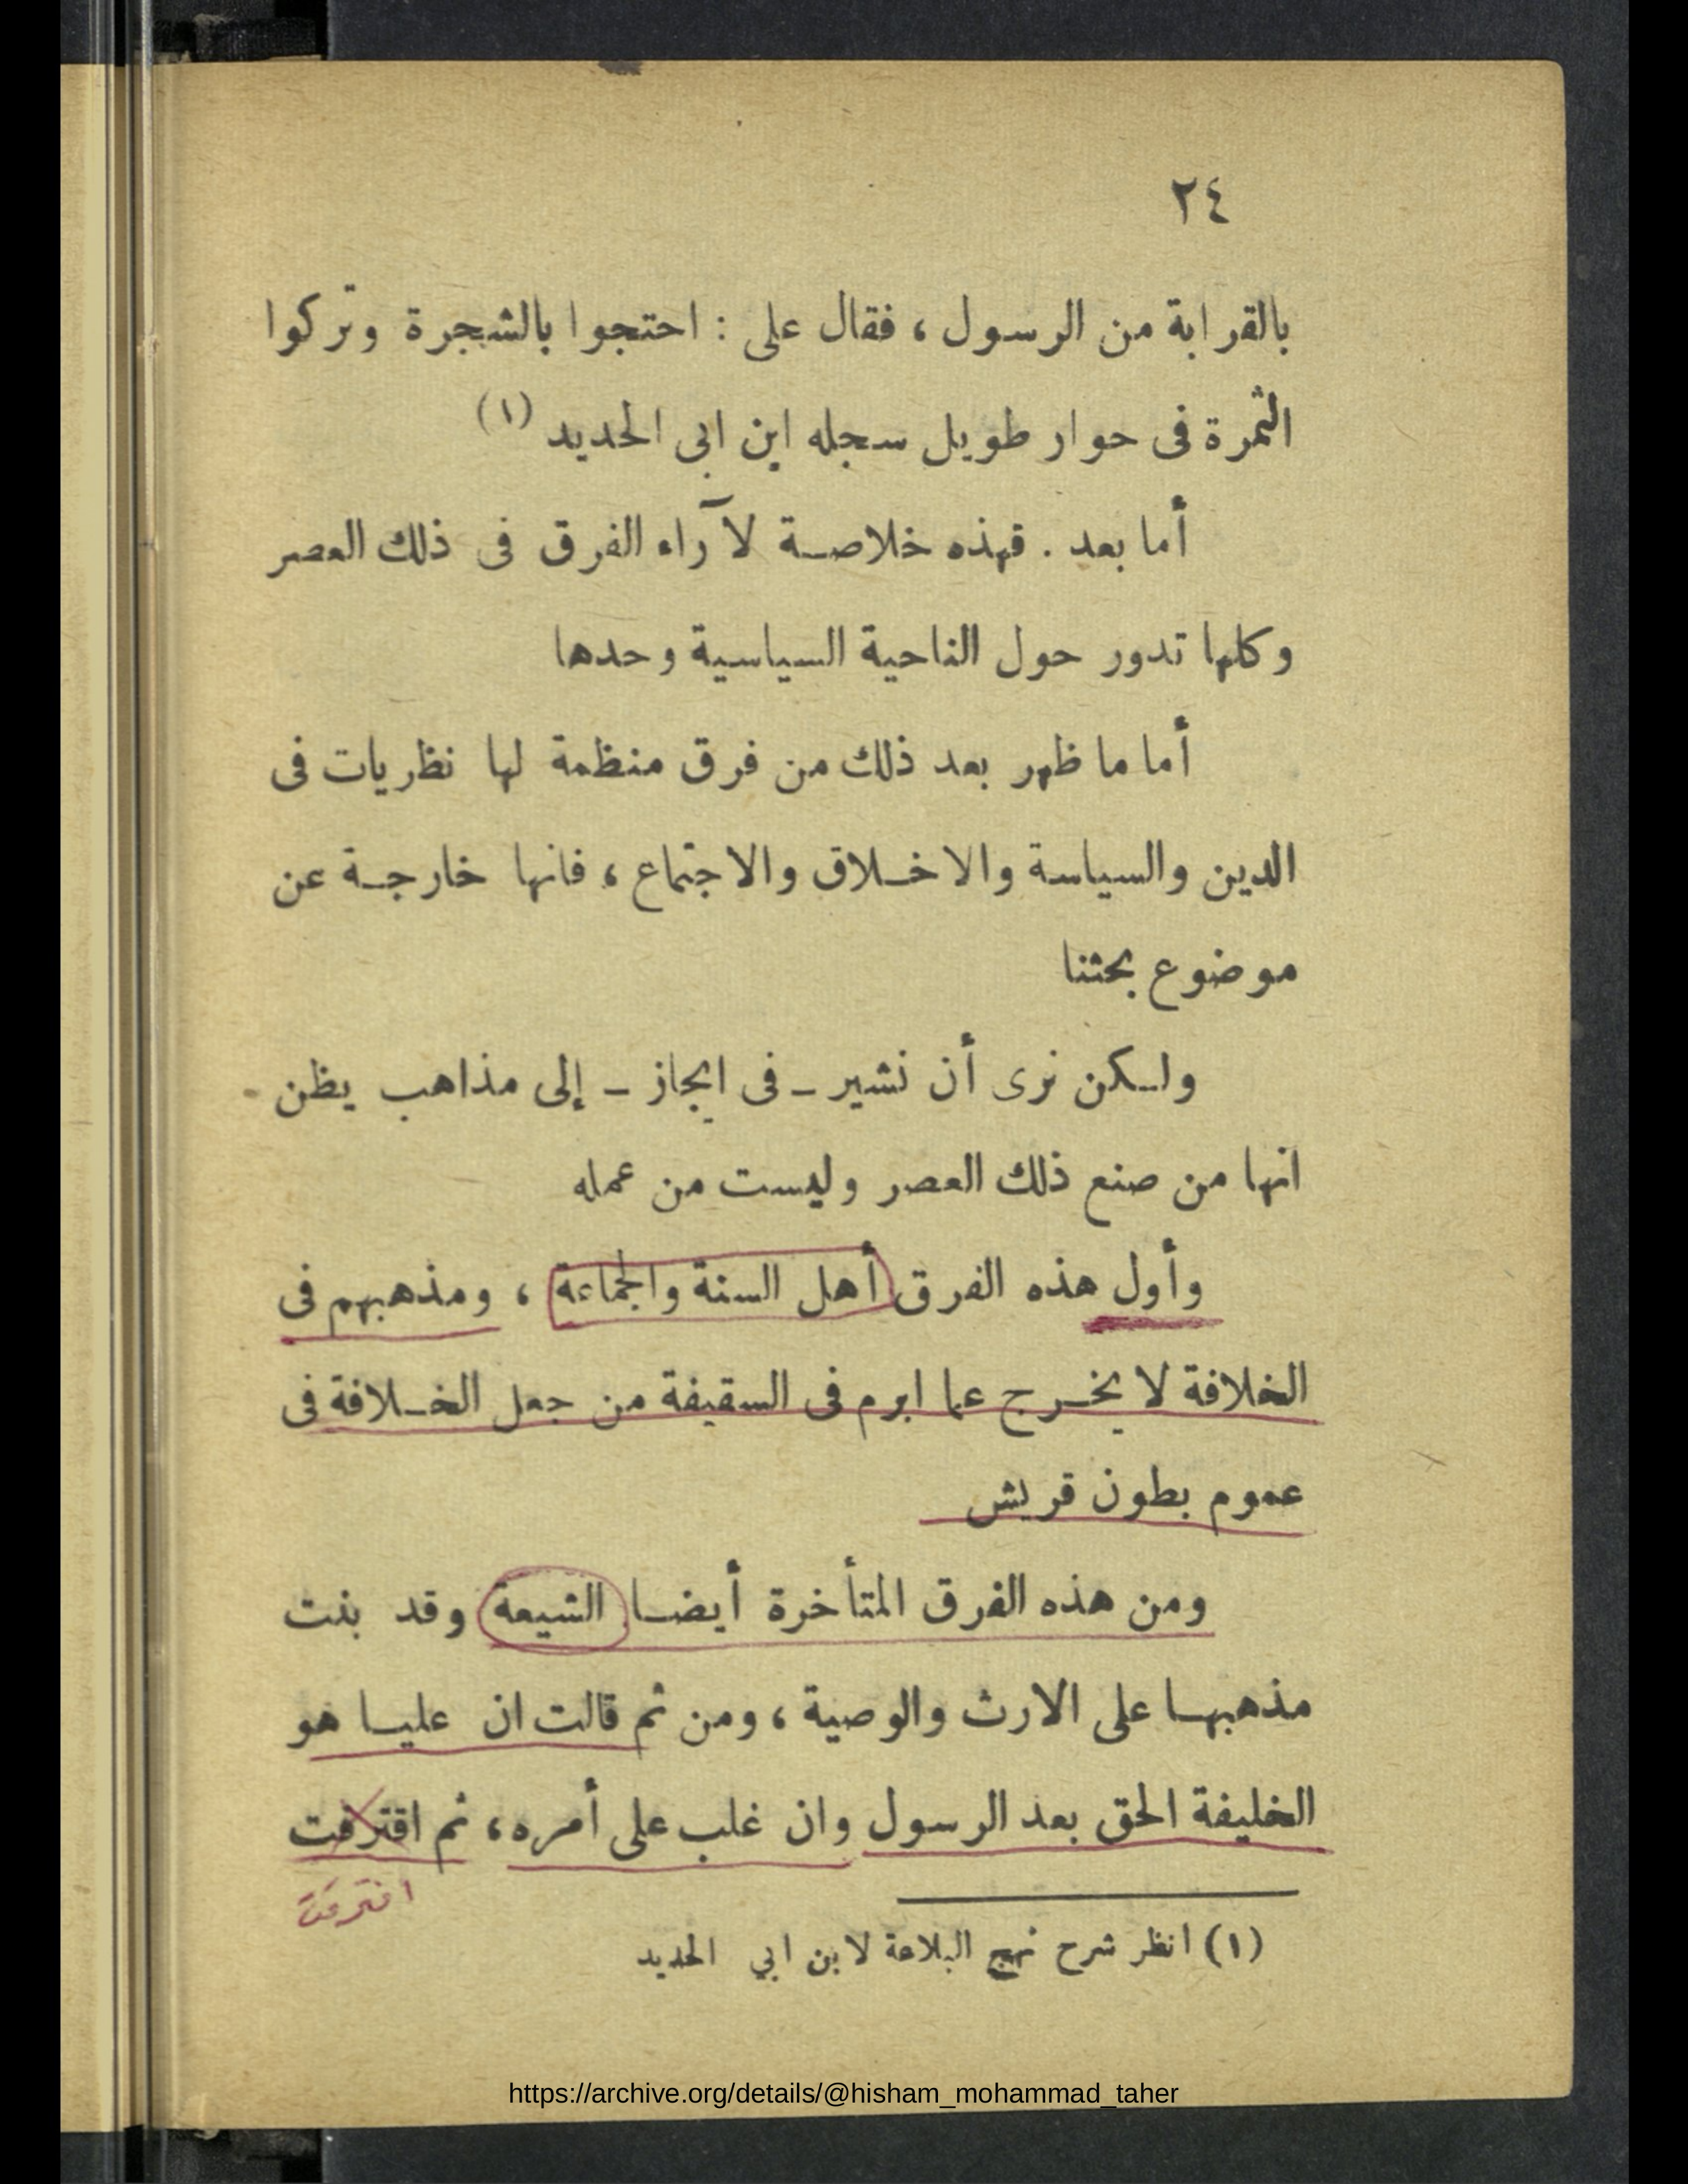 ٢٤
بالقرابة من الرسول ، فقال على : احتجوا بالشجرة وتركوا
الثمرة فى حوار طويل سجله ابن ابى الحديد (١)
أما بعد . فهذه خلاصة لآراء الفرق فى ذلك العصر
وكلها تدور حول الناحية السياسية وحدها
أما ما ظهر بعد ذلك من فرق منظمة لها نظريات فى
الدين والسياسة والاخلاق والاجتماع ، فانها خارجة عن
موضوع بحثنا
ولكن نرى أن نشير ـ فى ايجاز ـ إلى مذاهب يظن
انها من صنع ذلك العصر وليست من عمله
وأول هذه الفرق أهل السنة والجماعة ، ومذهبهم فى
الخلافة لا يخرج عما ابرم فى السقيفة من جعل الخلافة فى
عموم بطون قريش
ومن هذه الفرق المتأخرة أيضا الشيعة وقد بنت
مذهبها على الارث والوصية ، ومن ثم قالت ان عليا هو
الخليفة الحق بعد الرسول وان غلب على أمره ، ثم اقترفت
افترقت
(١) انظر شرح نهج البلاعة لابن ابي الحديد
https://archive.org/details/@hisham_mohammad_taher